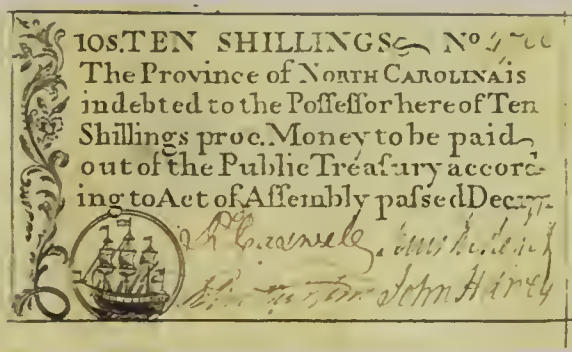 10s. TEN SHILLINGS Nº
The Province of NORTH CAROLINA is
indebted to the Poſſeſſor hereof Ten
Shillings proc. Money to be paid
out of the Public Treaſury accord-
ing to Act of Aſſembly paſsed Decr.
John Harvey